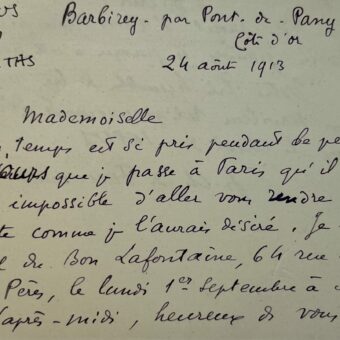 US Barbirey - par Pont-de-Pany
Côte d'or
TAS 24 août 1913
Mademoiselle
temps est si pris pendant
que je passe à Paris qu'il
impossible d'aller vous rendre
comme je l'aurais désiré. Je
Bon Lafontaine, 64 rue
Pères, le lundi 1er septembre à
après-midi, heureux de vous